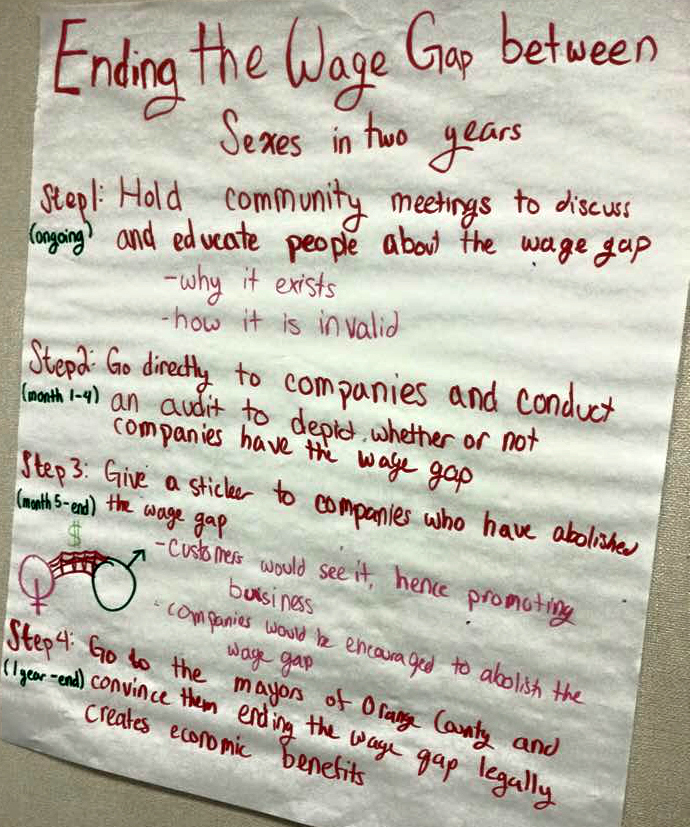 Ending the Wage Gap between
Sexes in two years
Step1: Hold community meetings to discuss
(ongoing) and educate people about the wage gap
-why it exists
-how it is invalid
Step2: Go directly to companies and conduct
(month 1-4) an audit to depict whether or not
companies have the wage gap
Step 3: Give a sticker to companies who have abolished
(month 5-end) the wage gap
$
-Customers would see it, hence promoting
buisiness
-companies would be encouraged to abolish the
wage gap
Step4: Go to the mayors of Orange County and
(1 year-end) convince them ending the wage gap legally
creates economic benefits